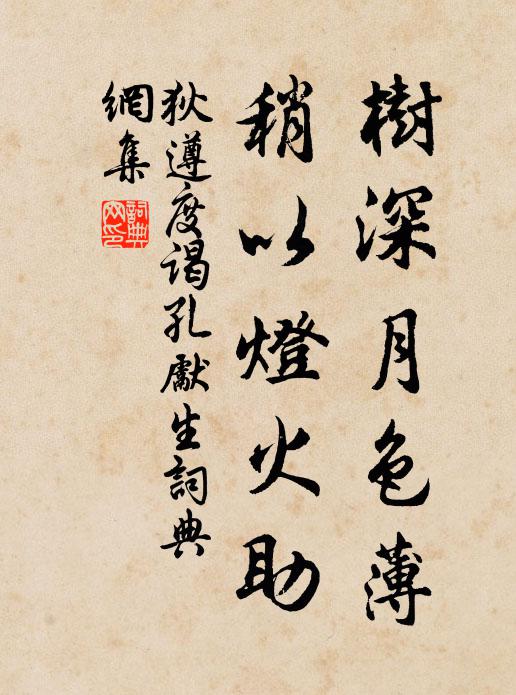 樹深月色薄
稍以燈火助
狄遵度謁孔獻生詞典
網集
詞典
网印